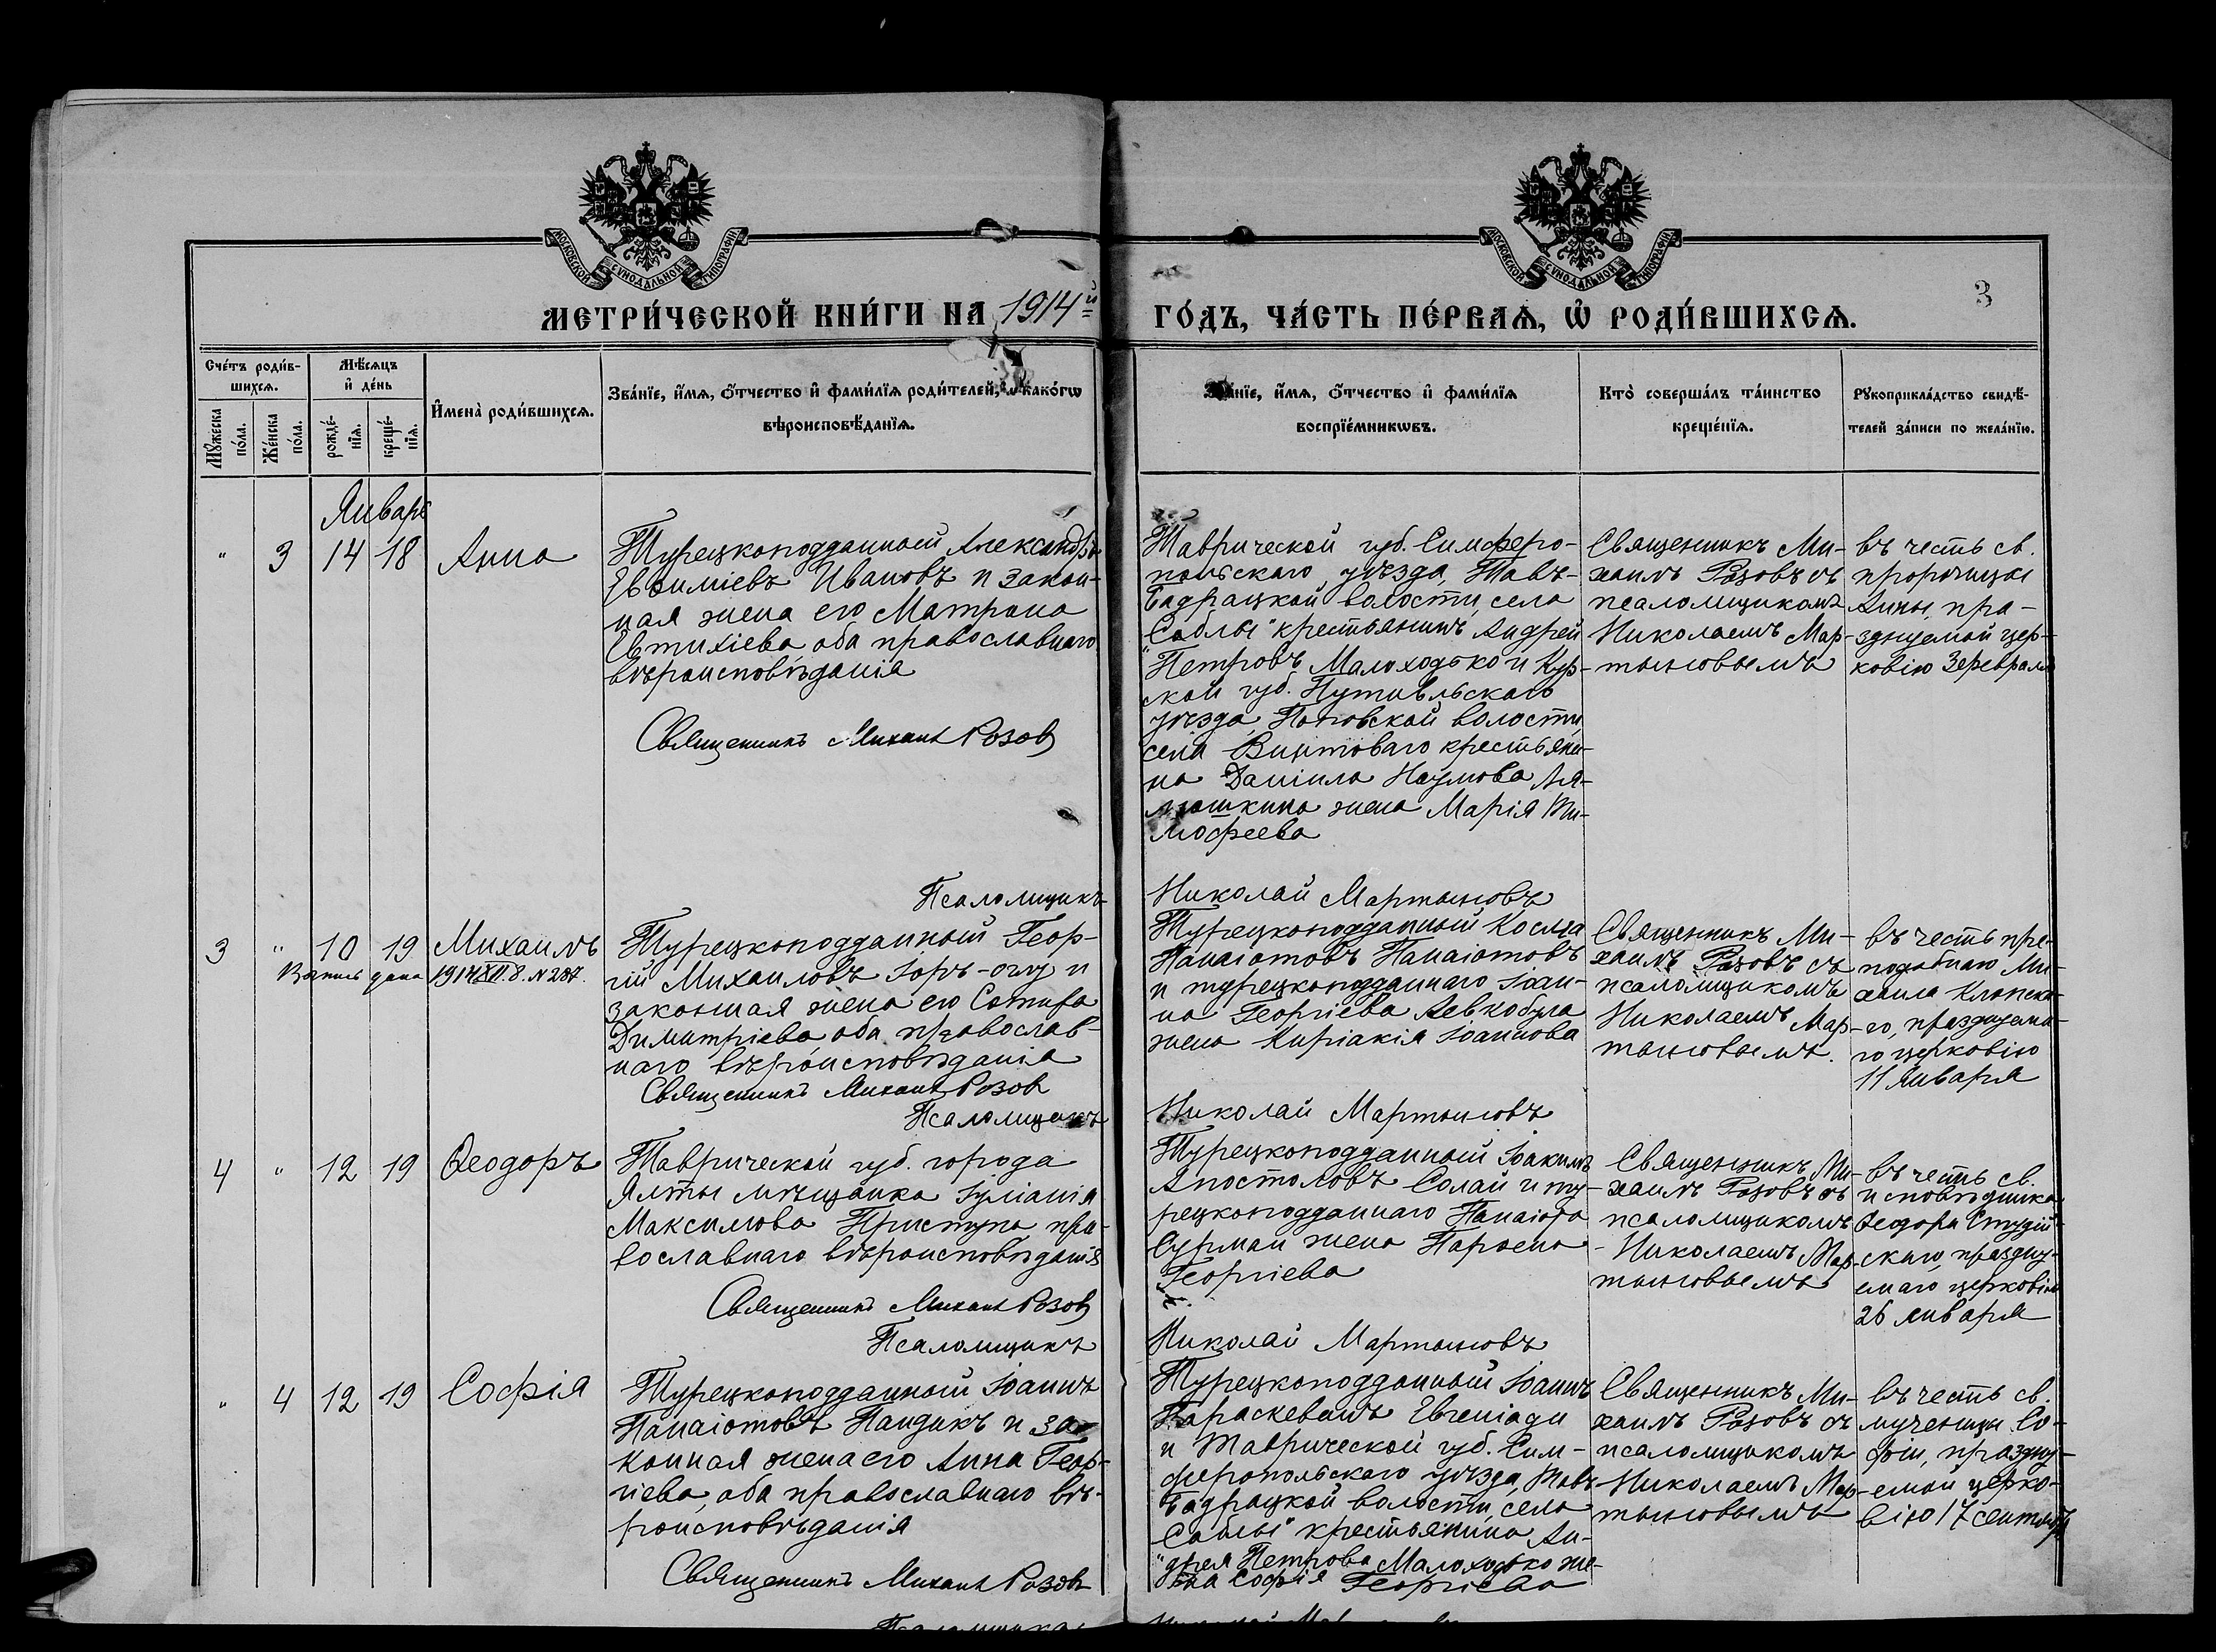 МОСКОВСКОЙ СѴНОДАЛЬНОЙ ТИПОГРАФІИ
МОСКОВСКОЙ СѴНОДАЛЬНОЙ ТИПОГРАФІИ
3
МЕТРИ́ЧЕСКОЙ КНИ́ГИ НА 1914й
ГО́ДЪ, ЧА́СТЬ ПЕ́РВАѦ, Ѡ҆ РОДИ́ВШИХСѦ.
Сче́тъ роди́в-
шихсѧ.
Мꙋ́жеска
по́ла.
Же́нска
по́ла.
Мѣ́сѧцъ
и҆ де́нь
рожде́-
нїѧ.
креще́-
нїѧ.
И҆мена̀ роди́вшихсѧ.
Зва́нїе, и҆́мѧ, ѻ҆́тчество и҆ фами́лїѧ роди́телей, и҆ како́гѡ
вѣроисповѣ́данїѧ.
Зва́нїе, и҆́мѧ, ѻ҆́тчество и҆ фами́лїѧ
воспрїе́мникѡвъ.
Кто̀ соверша́лъ та́инство
креще́нїѧ.
Рꙋкоприкла́дство свидѣ́-
телей за́писи по жела́нїю.
Январь
" 3 14 18 Анна
Турецкоподданный Александръ
Евѳиміевъ Ивановъ и закон-
ная жена его Матрона
Евтихіева, оба православнаго
вѣроисповѣданія
Священникъ Михаил Розов
Псаломщикъ
Таврической губ. Симферо-
польскаго уѣзда, Тавъ-
Бадракской волости, села
"Саблы" крестьянинъ Андрей
Петровъ Малоходько и Кур-
ской губ. Путивльскаго
уѣзда, Поповской волости,
села Винтоваго крестьяни-
на Даніила Наумова Ля-
люшкина жена Марія Ти-
моѳеева
Николай Мартыновъ
Священникъ Ми-
хаилъ Розовъ съ
псаломщикомъ
Николаемъ Мар-
тыновымъ
въ честь св.
пророчицы
Анны, пра-
зднуемой цер-
ковію 3 февраля
3 " 10 19 Михаилъ
Выпись дана 1914 XII. 8. N 287.
Турецкоподданный Геор-
гій Михаиловъ Іоръ-оглу и
законная жена его Сотира
Димитріева, оба православ-
наго вѣроисповѣданія
Священникъ Михаил Розов
Псаломщикъ
Турецкоподданный Косма
Панаіотовъ Панаіотовъ
и турецкоподданнаго Іоан-
на Георгіева Левкобула
жена Киріакія Іоаннова
Николай Мартыновъ
Священникъ Ми-
хаилъ Розовъ съ
псаломщикомъ
Николаемъ Мар-
тыновымъ.
въ честь пре-
подобнаго Ми-
хаила Клопска-
го, празднуема-
го церковію
11 января
4 " 12 19 Ѳеодоръ
Таврической губ. города
Ялты мѣщанка Іуліанія
Максимова Приступа пра-
вославнаго вѣроисповѣданія
Священникъ Михаил Розов
Псаломщикъ
Турецкоподданный Іоакимъ
Апостоловъ Солай и ту-
рецкоподданнаго Панаіота
Сурман жена Парѳена
Георгіева
Николай Мартыновъ
Священникъ Ми-
хаилъ Розовъ съ
псаломщикомъ
Николаемъ Мар-
тыновымъ
въ честь св.
исповѣдника
Ѳеодора Студій-
скаго, праздну-
емаго церковію
26 января
" 4 12 19 Софія
Турецкоподданный Іоаннъ
Панаіотовъ Пандикъ и за-
конная жена его Анна Геор-
гіева, оба православнаго вѣ-
роисповѣданія
Священникъ Михаил Розов
Турецкоподданный Іоаннъ
Параскевашъ Евгеніади
и Таврической губ. Сим-
феропольскаго уѣзда, Тавъ-
Бадракской волости, села
"Саблы" крестьянина Ан-
дрея Петрова Малоходько же-
на Софія Георгіева
Священникъ Ми-
хаилъ Розовъ съ
псаломщикомъ
Николаемъ Мар-
тыновымъ
въ честь св.
мученицы Со-
фіи, праздну-
емой церко-
вію 17 сентября